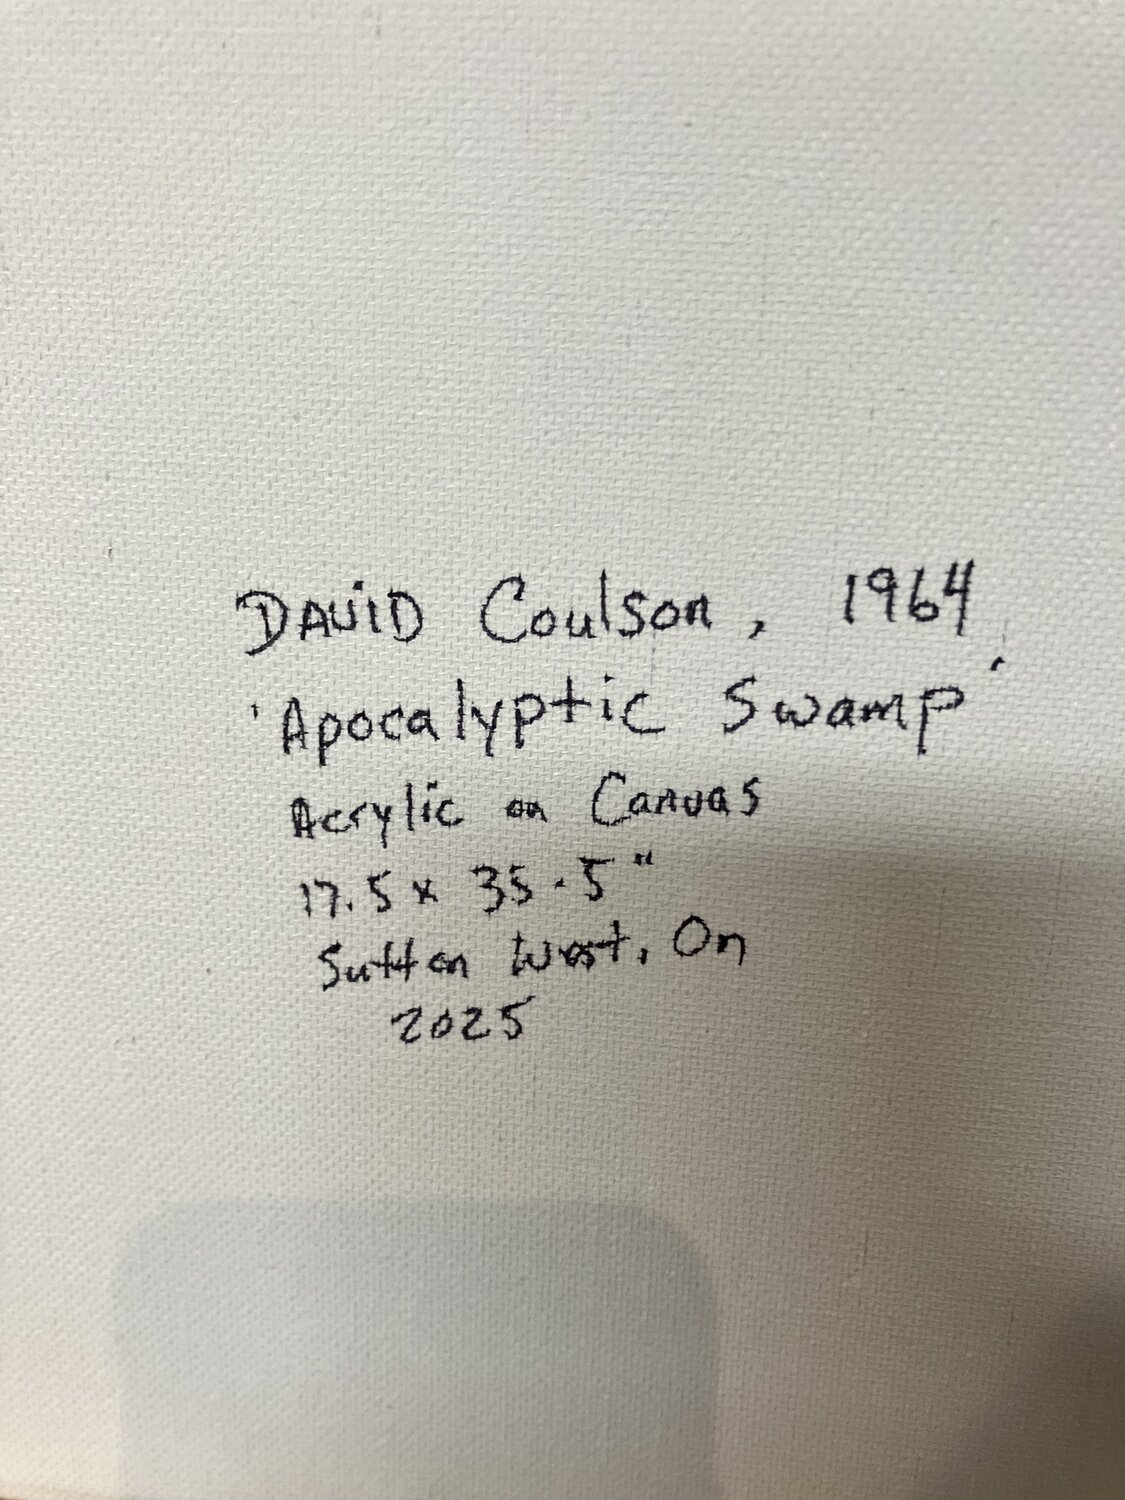 DAViD Coulson, 1964
'Apocalyptic Swamp'
Acrylic on Canvas
17.5 x 35.5"
Sutton West, On
2025